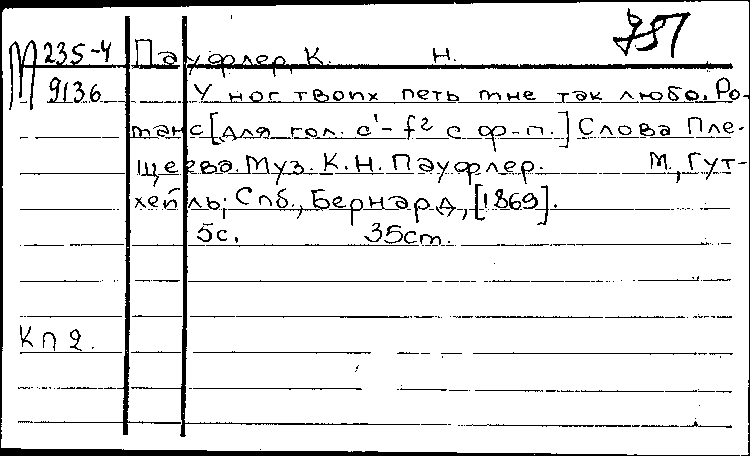 М 235-4 Пауфлер, К. Н. 757
9136 У ног твоих петь мне так любо. Ро-
манс [для гол. c¹-f² с ф-п.] Слова Пле-
щеева. Муз. К. Н. Пауфлер. М., Гут-
хейль; Спб., Бернард, [1869].
5с. 35см.
Кп 2.